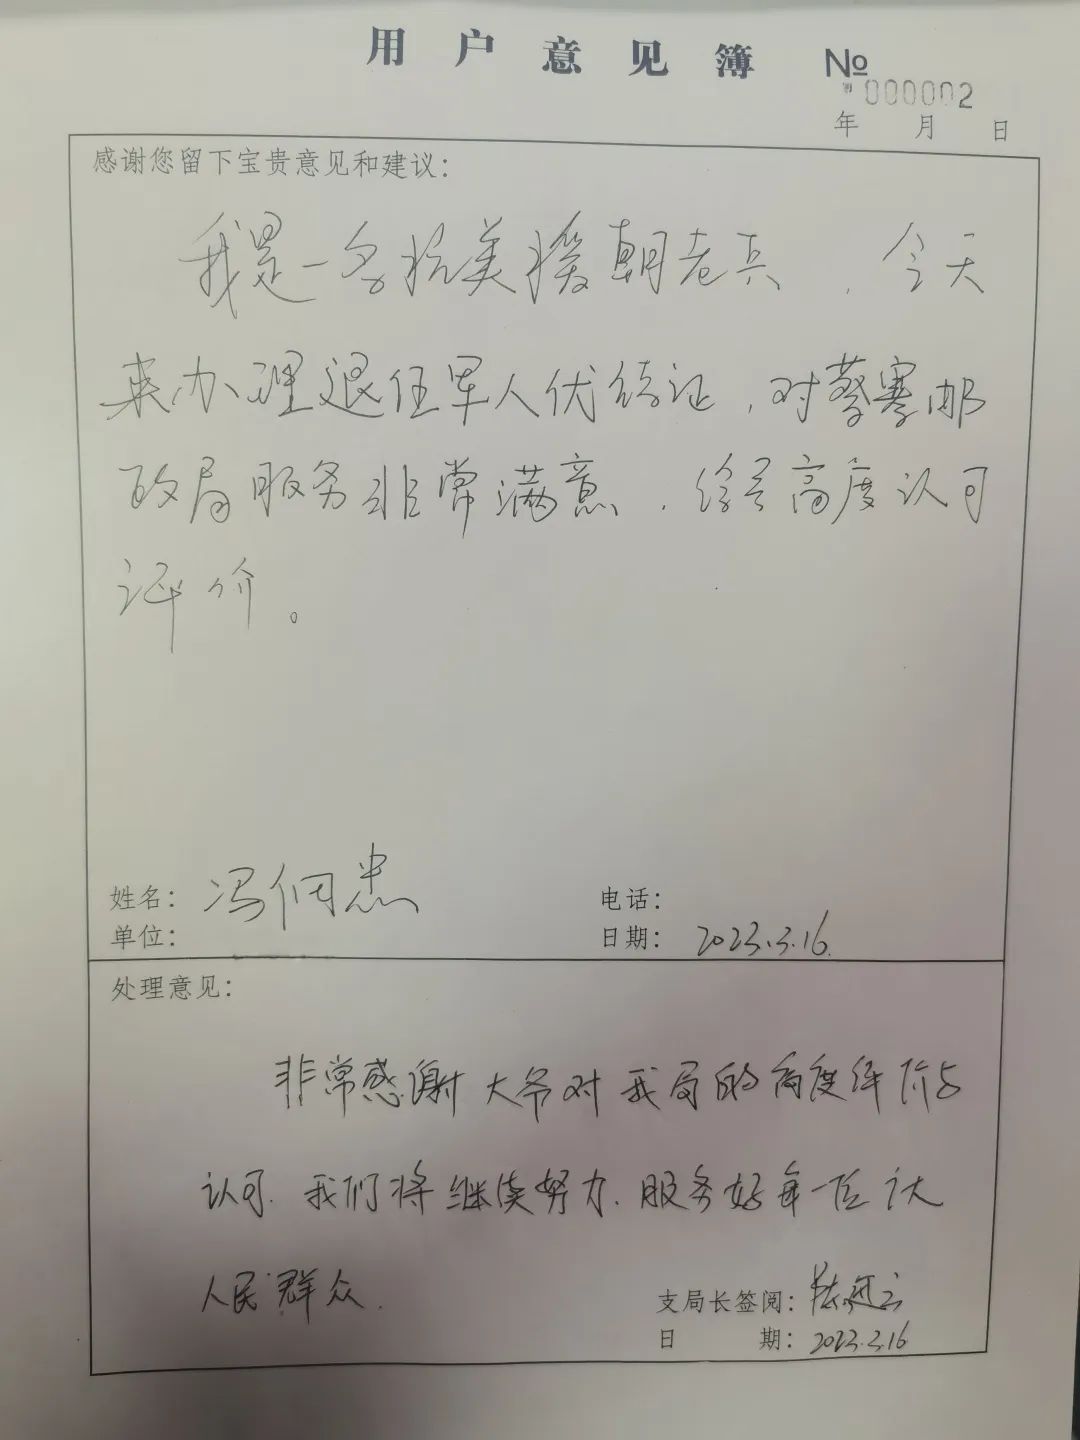 用户意见簿 №
0000002
年 月 日
感谢您留下宝贵意见和建议：
我是一名抗美援朝老兵，今天
来办理退伍军人优待证，对蔡寨邮
政局服务非常满意，给予高度认可
评价。
姓名：冯佃忠 电话：
单位： 日期：2023.3.16.
处理意见：
非常感谢大爷对我局的高度评价与
认可.我们将继续努力.服务好每一位广大
人民群众.
支局长签阅：
日 期：2023.3.16